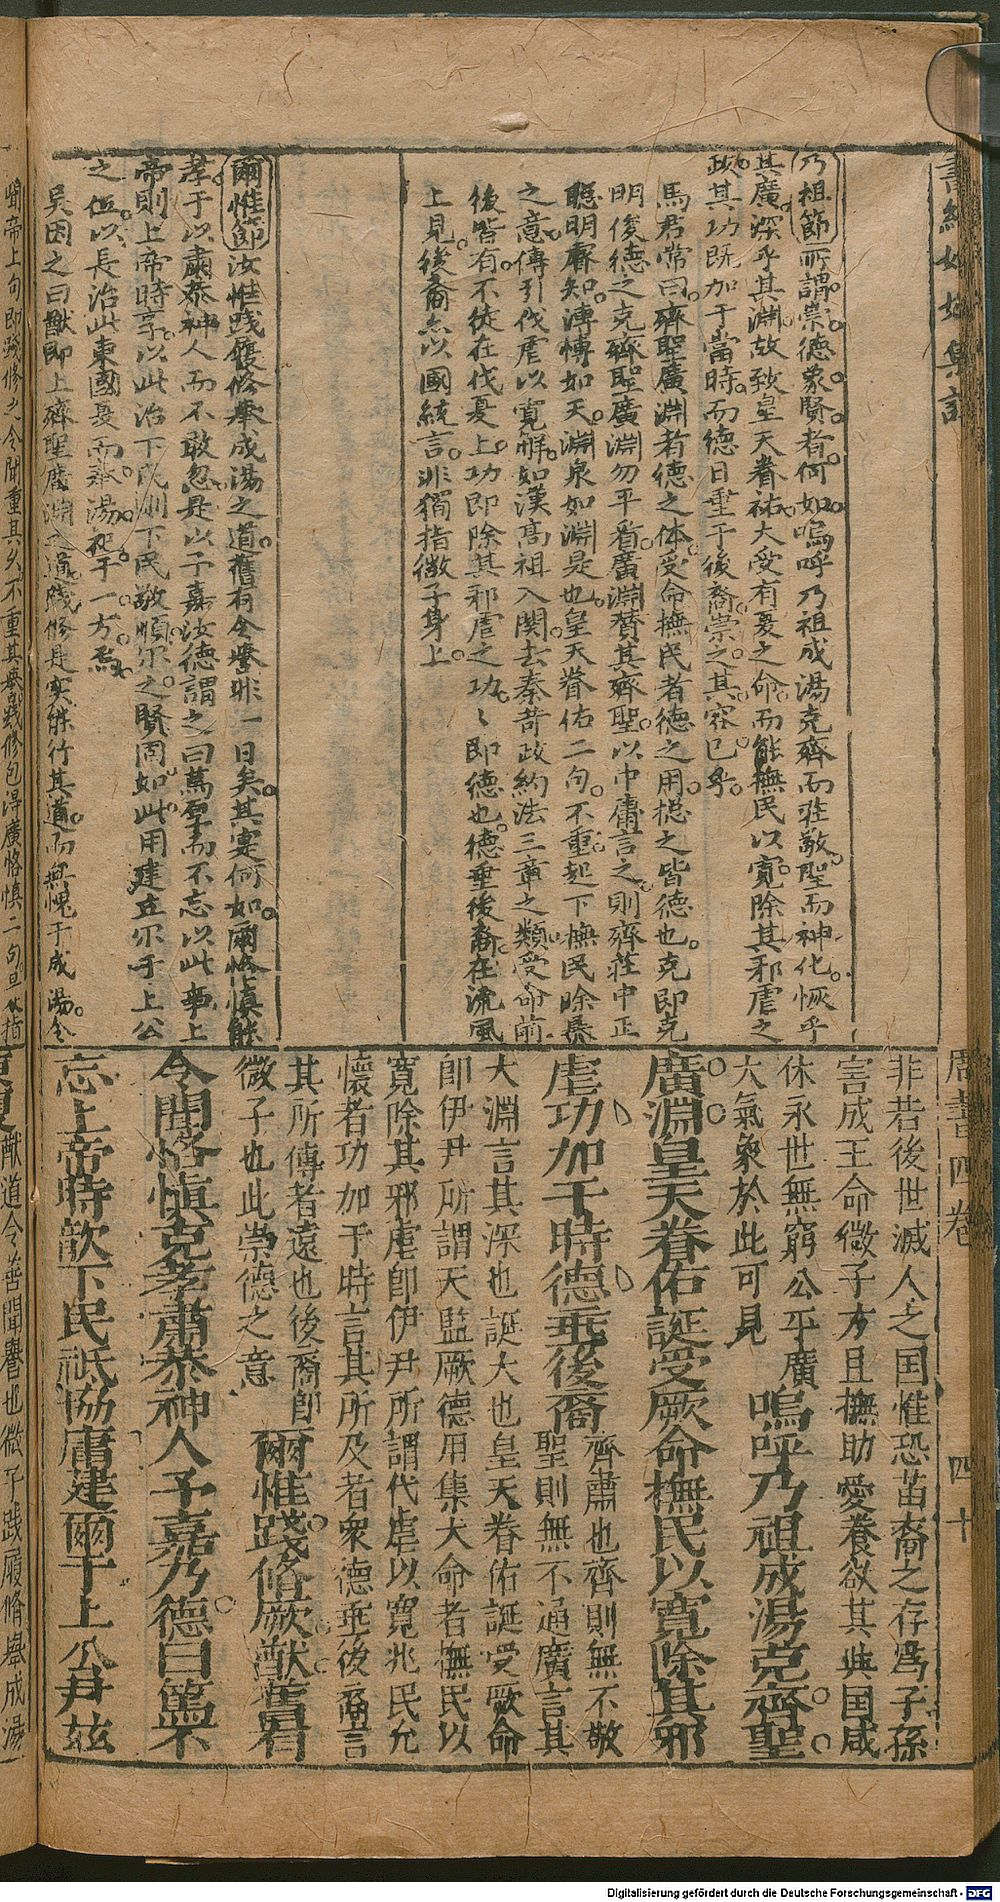 乃祖節所謂崇德象賢者何如嗚呼乃祖成湯克齊而莊敬聖而神化恢乎
其廣深乎其淵故致皇天眷祐大受有夏之命而能撫民以寬除其邪虐之
政其功既加于當時而德日垂于後裔崇之其容已乎
馬君常曰齊聖廣淵者德之体受命撫民者德之用揔之皆德也克即克
明俊德之克齊聖廣淵勿平看廣淵贊其齊聖以中庸言之則齊莊中正
聰明睿知溥愽如天淵泉如淵是也皇天眷佑二句不重起下撫民除暴
之意傳引伐虐以寬解如漢高祖入関去秦苛政約法三章之類受命前
後皆有不徒在伐夏上功即除其邪虐之功〻即德也德垂後裔在流風
上見後裔亦以國統言非獨指微子身上
爾惟節汝惟踐履修舉成湯之道舊有令譽非一日矣其寔何如爾恪慎能
孝于以肅恭神人而不敢忽是以予嘉汝德謂之曰篤厚而不忘以此事上
帝則上帝時享以此治下民則下民敬順尔之賢固如此用建立尔于上公
之位以長治此東國夏而奉湯祀于一方焉
吳因之曰猷即上齊聖廣淵之道踐修是实能行其道而無愧于成湯令
聞帝上句即踐修之令聞重其久不重其譽踐修包得廣恪慎二句
書經
周書四卷
四十
非若後世滅人之国惟恐苗裔之存為子孫
害成王命微子方且撫助愛養欲其與国咸
休永世無窮公平廣
大氣象於此可見
嗚呼乃祖成湯克齊聖
廣淵皇天眷佑誕受厥命撫民以寬除其邪
虐功加于時德垂後裔
齊肅也齊則無不敬
聖則無不通廣言其
大淵言其深也誕大也皇天眷佑誕受厥命
即伊尹所謂天監厥德用集大命者撫民以
寬除其邪虐即伊尹所謂代虐以寬兆民允
懷者功加于時言其所及者衆德垂後裔言
其所傳者遠也後裔即
微子也此崇德之意
爾惟踐脩厥猷舊有
令聞恪慎克孝肅恭神人予嘉乃德曰篤不
忘上帝時歆下民祗協庸建爾于上公尹茲
猷道令善聞譽也微子踐履脩舉成湯
Digitalisierung gefördert durch die Deutsche Forschungsgemeinschaft - DFG